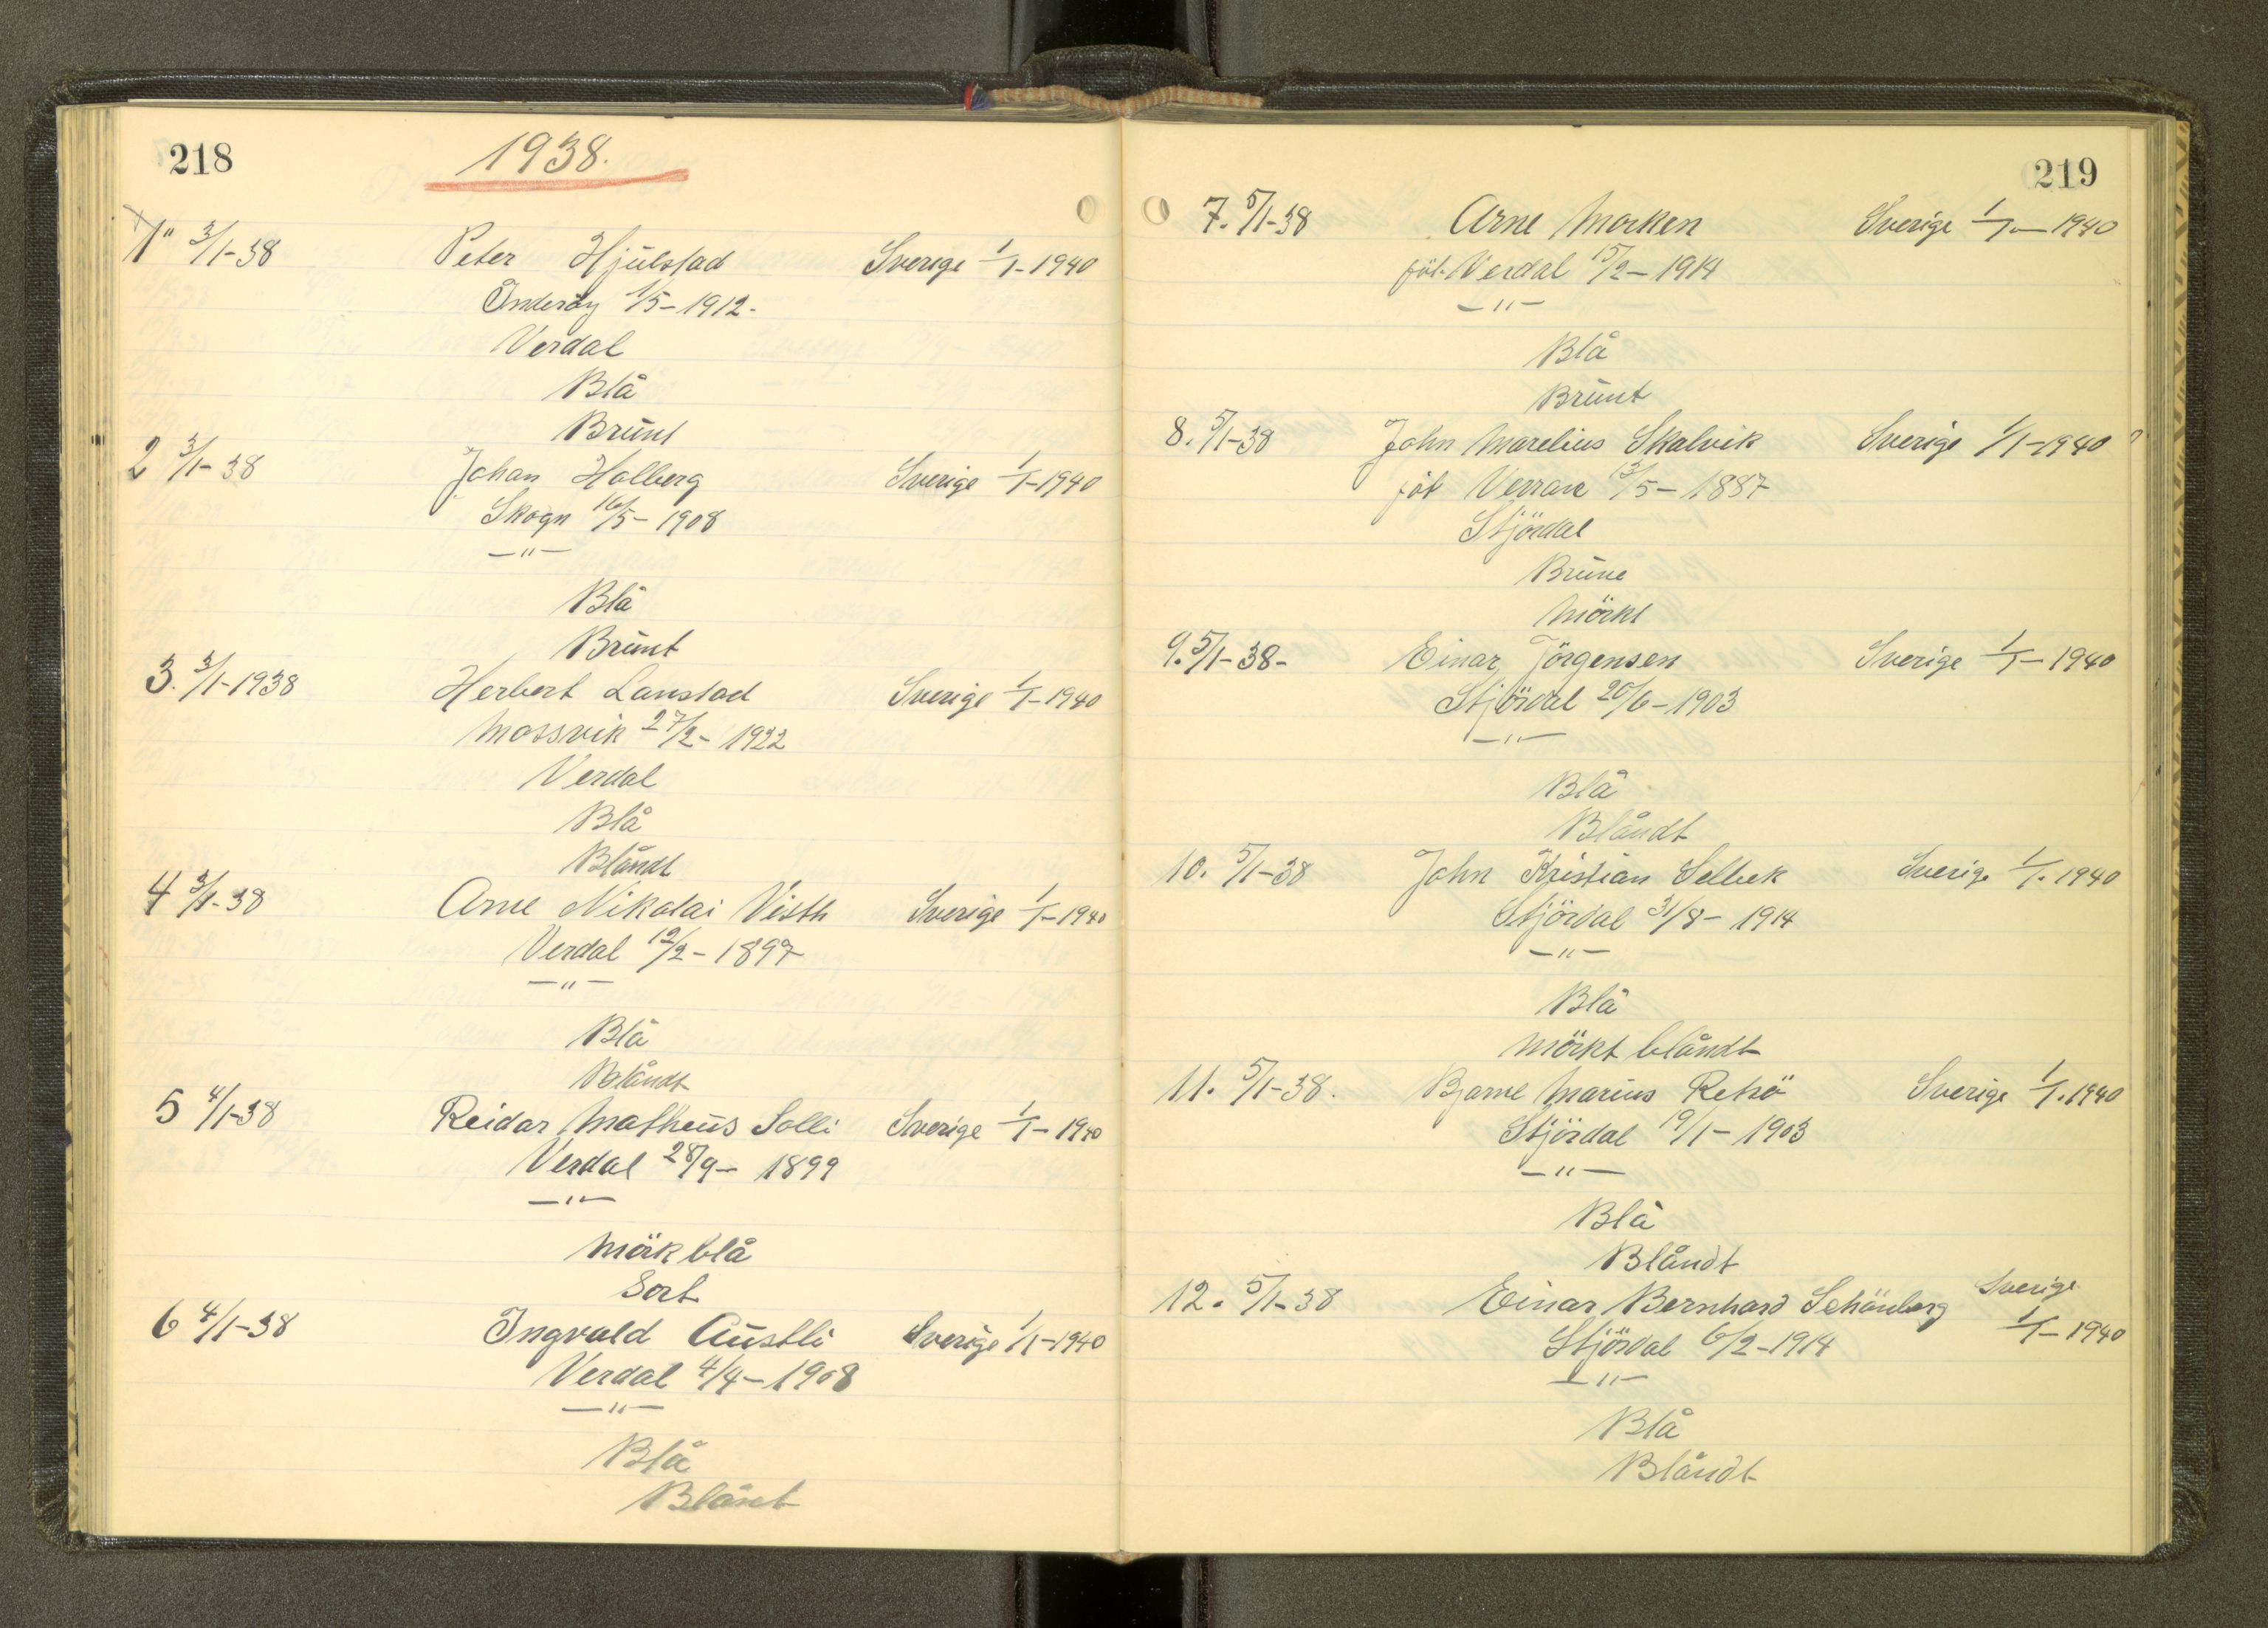 218
1938.
1" 3/1-38 Peter Hjulstad Sverige 1/1-1940
Inderøy 1/5-1912.
Verdal
Blå
Brunt
2 3/1-38 Johan Holberg Sverige 1/1-1940
Skogn 16/5-1908
—"—
Blå
Brunt
3. 3/1-1938 Herbert Lanstad Sverige 1/1-1940
Mossvik 27/2-1922
Verdal
Blå
Blåndt
4 3/1-38 Arne Nikolai Visth Sverige 1/1-1940
Verdal 12/2-1897
—"—
Blå
Blåndt
5 4/1-38 Reidar Matheus Solli Sverige 1/1-1940
Verdal 28/9-1899
—"—
Mörk blå
Sort
6 4/1-38 Ingvald Austli Sverige 1/1-1940
Verdal 4/4-1908
—"—
Blå
Blånt
219
7. 5/1-38 Arne Morken Sverige 1/1-1940
föt. Verdal 15/2-1914
—"—
Blå
Brunt
8. 5/1-38 John Marelius Skalvik Sverige 1/1-1940
föt Verran 13/5-1887
Stjördal
Brune
Mörkt
9. 5/1-38- Einar Jörgensen Sverige 1/1-1940
Stjördal 20/6-1903
—"—
Blå
Blåndt
10. 5/1-38 John Kristian Selbek Sverige 1/1.1940
Stjördal 31/8-1914
—"—
Blå
Mörkt blåndt
11. 5/1-38. Bjarne Marius Sverige 1/1.1940
Stjördal 19/1-1903
—"—
Blå
Blåndt
12. 5/1-38 Einar Bernhard Schönberg Sverige
1/1-1940
Stjördal 6/2-1914
—"—
Blå
Blåndt